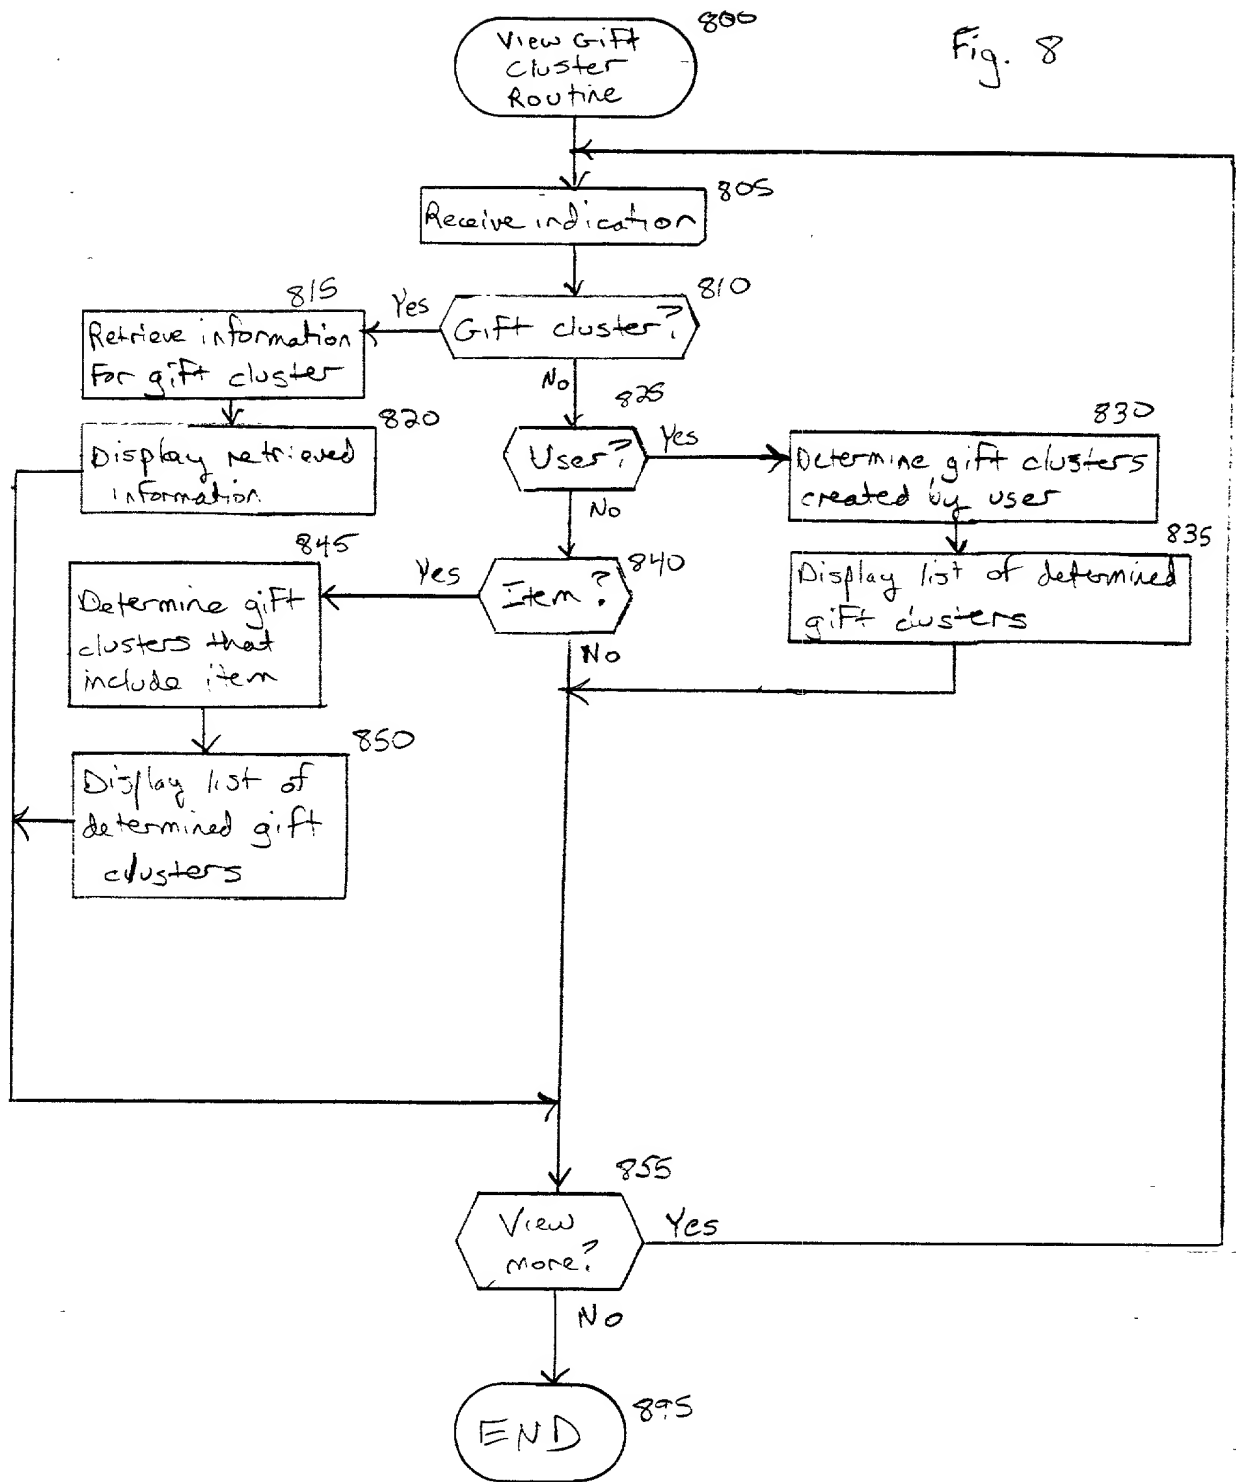 800
View Gift
Cluster
Routine
Fig. 8
805
Receive indication
810
Gift cluster?
Yes
815
Retrieve information
For gift cluster
No
820
Display retrieved
information
825
User?
Yes
830
Determine gift clusters
created by user
No
835
Display list of determined
gift clusters
840
Item?
Yes
845
Determine gift
clusters that
include item
No
850
Display list of
determined gift
clusters
855
View
more?
Yes
No
895
END